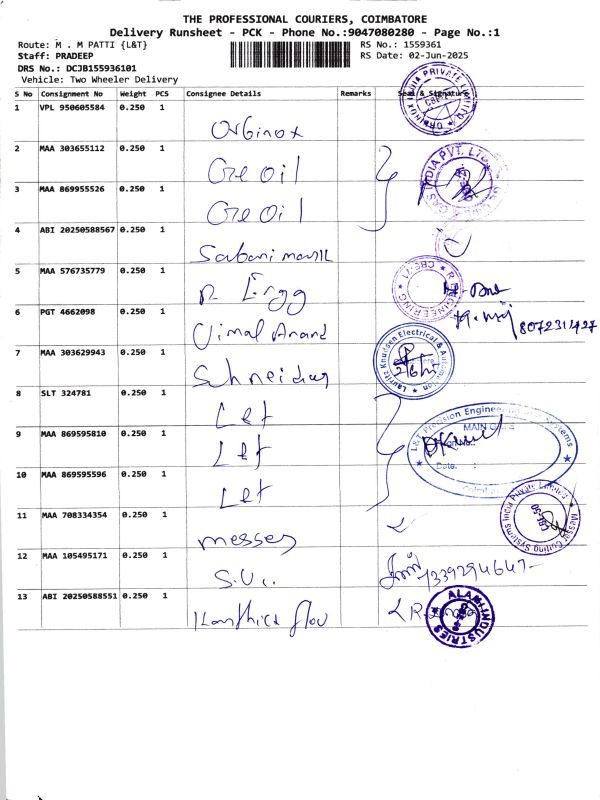 THE PROFESSIONAL COURIERS, COIMBATORE
Delivery Runsheet - PCK - Phone No.:9047080280 - Page No.:1
Route: M . M PATTI {L&T}
RS No.: 1559361
Staff: PRADEEP
RS Date: 02-Jun-2025
DRS No.: DCJB155936101
Vehicle: Two Wheeler Delivery
S No Consignment No Weight PCS Consignee Details Remarks Seal & Signature
1 VPL 950605584 0.250 1 Orbinox
2 MAA 303655112 0.250 1 Geoil
3 MAA 869955526 0.250 1 Geoil
4 ABI 20250588567 0.250 1
5 MAA 576735779 0.250 1 R Engg
6 PGT 4662098 0.250 1 Vimal Anand 8072311427
7 MAA 303629943 0.250 1 Schneider
8 SLT 324781 0.250 1 L&T
9 MAA 869595810 0.250 1 L&T
10 MAA 869595596 0.250 1 L&T
11 MAA 708334354 0.250 1 messer
12 MAA 105495171 0.250 1 7339294647
13 ABI 20250588551 0.250 1
GAS INDIA PVT. LTD
Lauritz Knudsen Electrical & Automation
L&T Precision Engineering and Systems
MAIN GATE
Date. :
Messer Cutting Systems India Private Limited
CBE-50
ALAMI INDUSTRIES